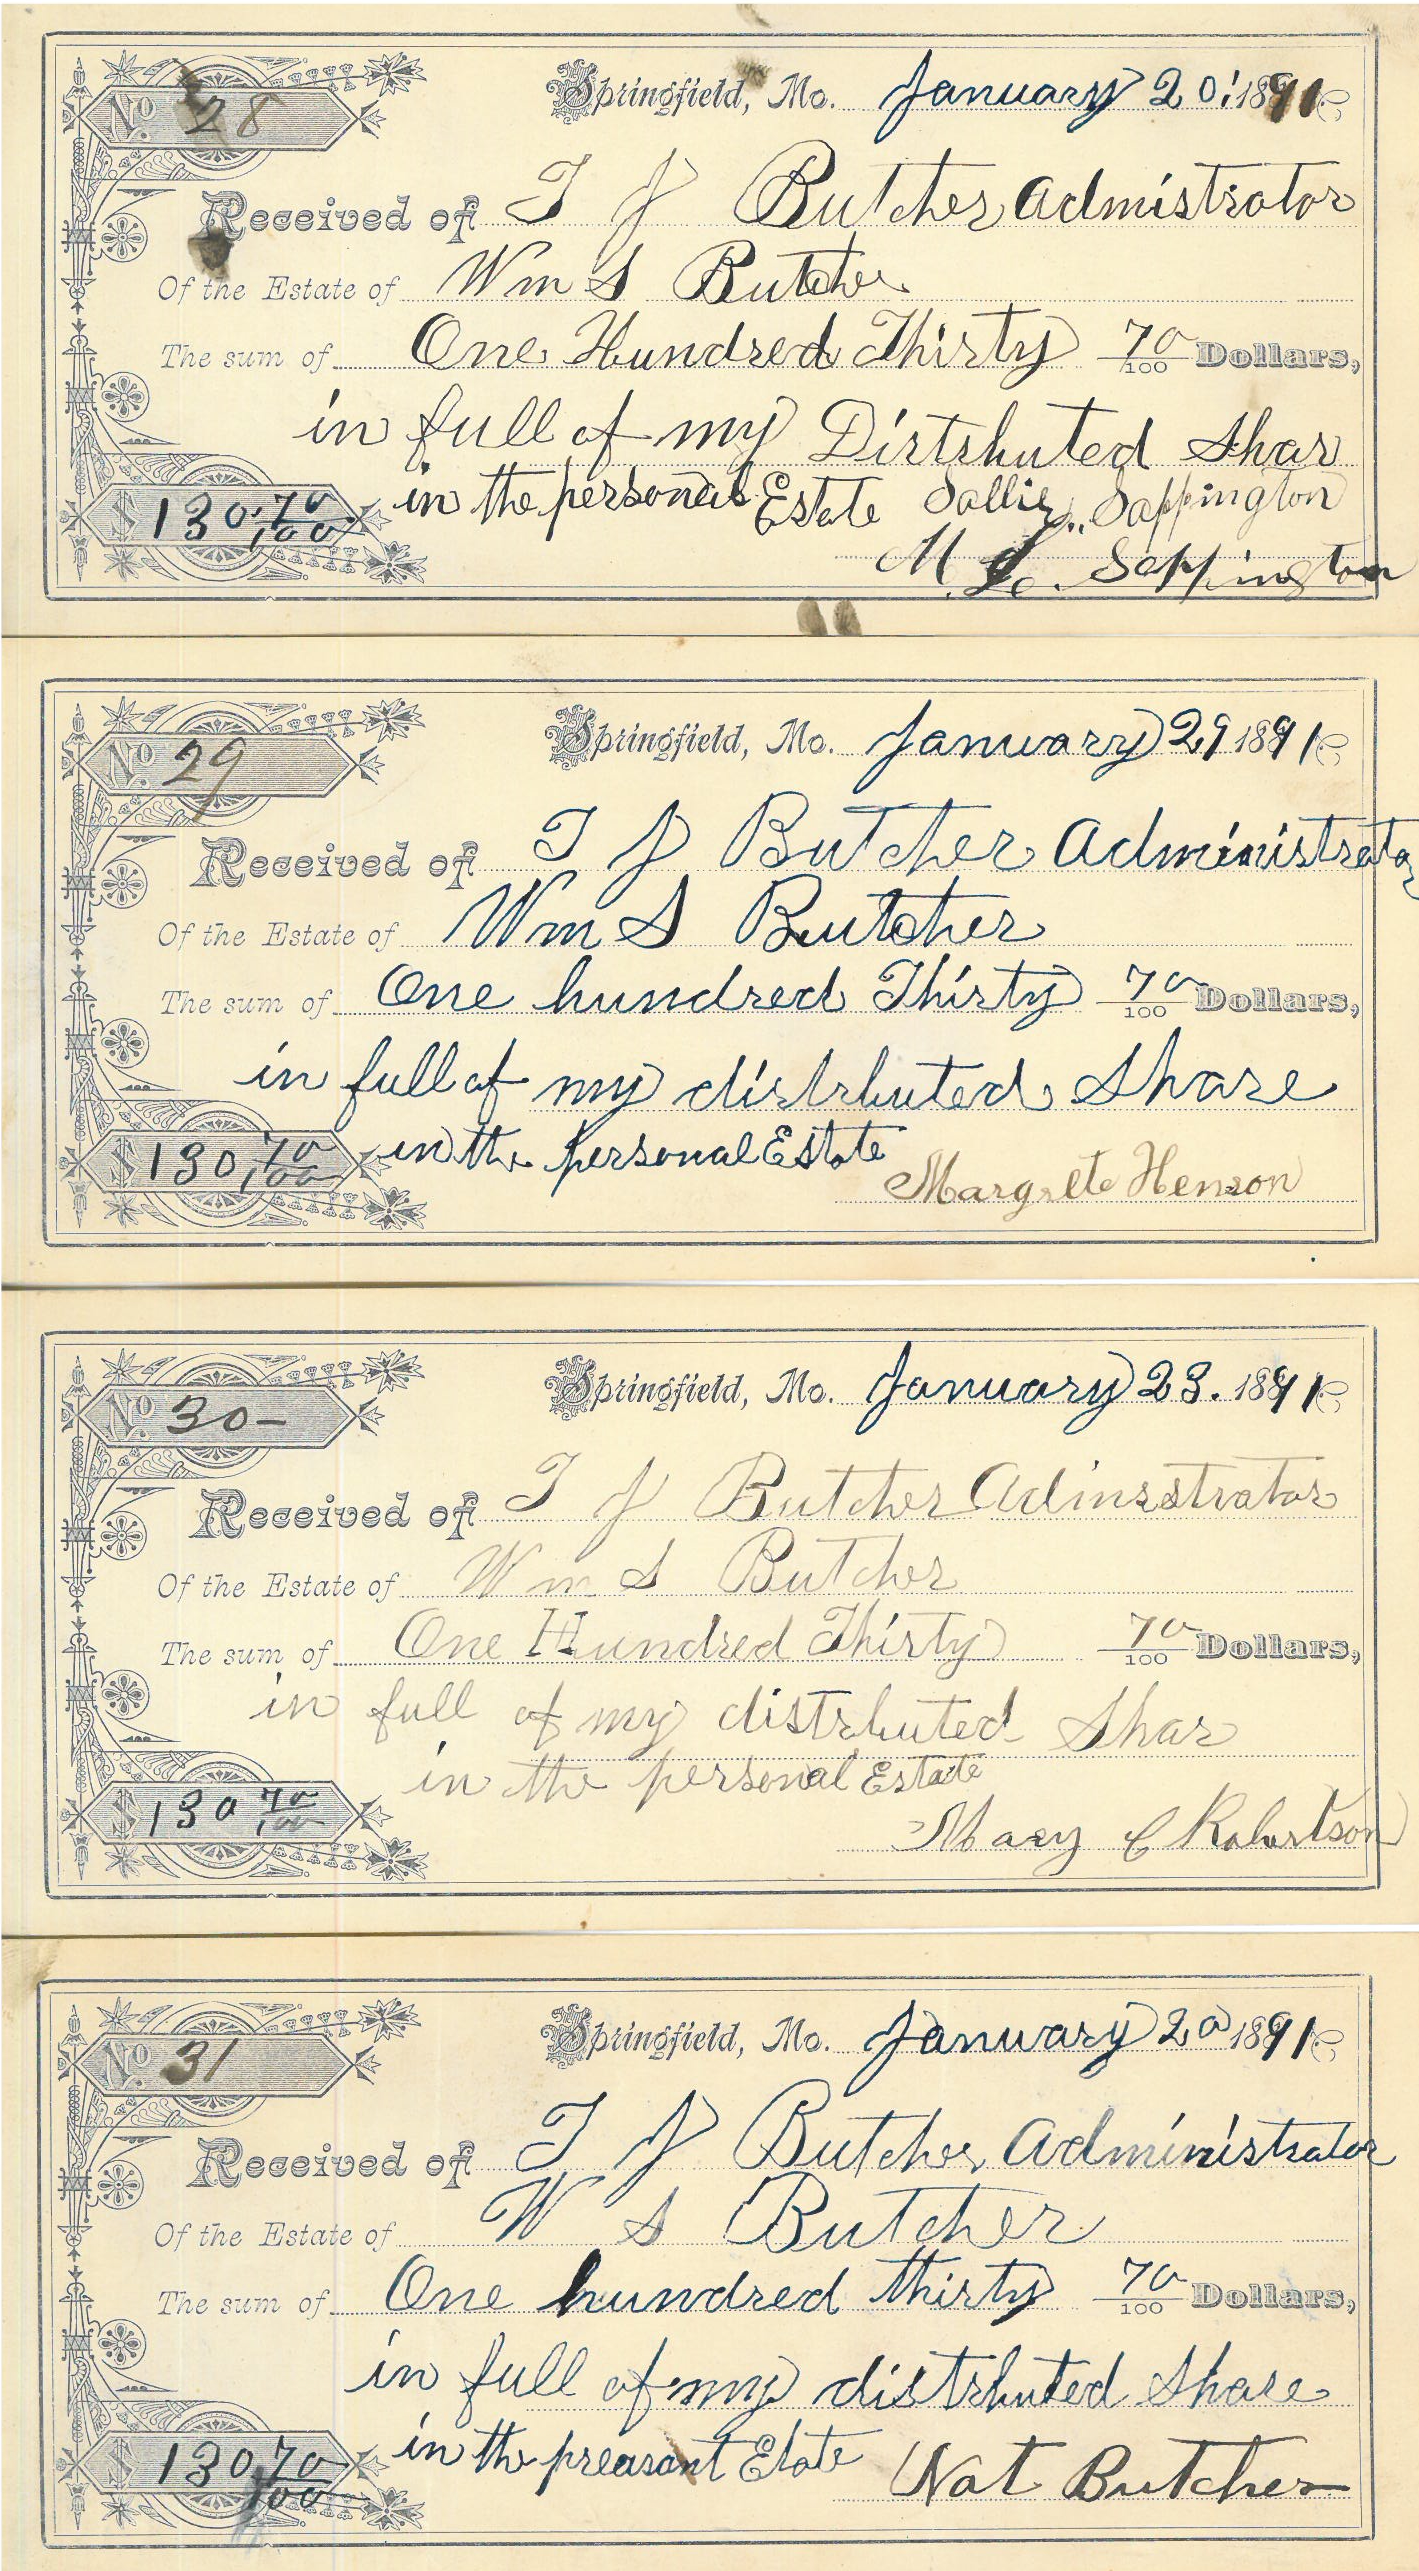 No 28
Springfield, Mo. January 20, 1891
Received of T J Butcher Admistrator
Of the Estate of Wm S Butcher
The sum of One Hundred Thirty 70/100 Dollars,
in full of my Distrbuted Shar
in the personal Estate Sallie Sappington
$ 130.70/100
M L. Sappington
No 29
Springfield, Mo. January 29 1891
Received of T J Butcher Administrator
Of the Estate of Wm S Butcher
The sum of One hundred Thirty 70/100 Dollars,
in full of my distrbuted Share
$ 130,70/100 in the personal Estate
Margrete Henson
No 30-
Springfield, Mo. January 23. 1891
Received of T J Butcher Adinistrator
Of the Estate of Wm S Butcher
The sum of One Hundred Thirty 70/100 Dollars,
in full of my distrbuted Shar
in the personal Estate
$ 130 70/100
Mary C Robertson
No 31
Springfield, Mo. January 20 1891
Received of T J Butcher Administrator
Of the Estate of W S Butcher
The sum of One hundred thirty 70/100 Dollars,
in full of my distrbuted Share
$ 130 70/100 in the preasant Etate
Nat Butcher